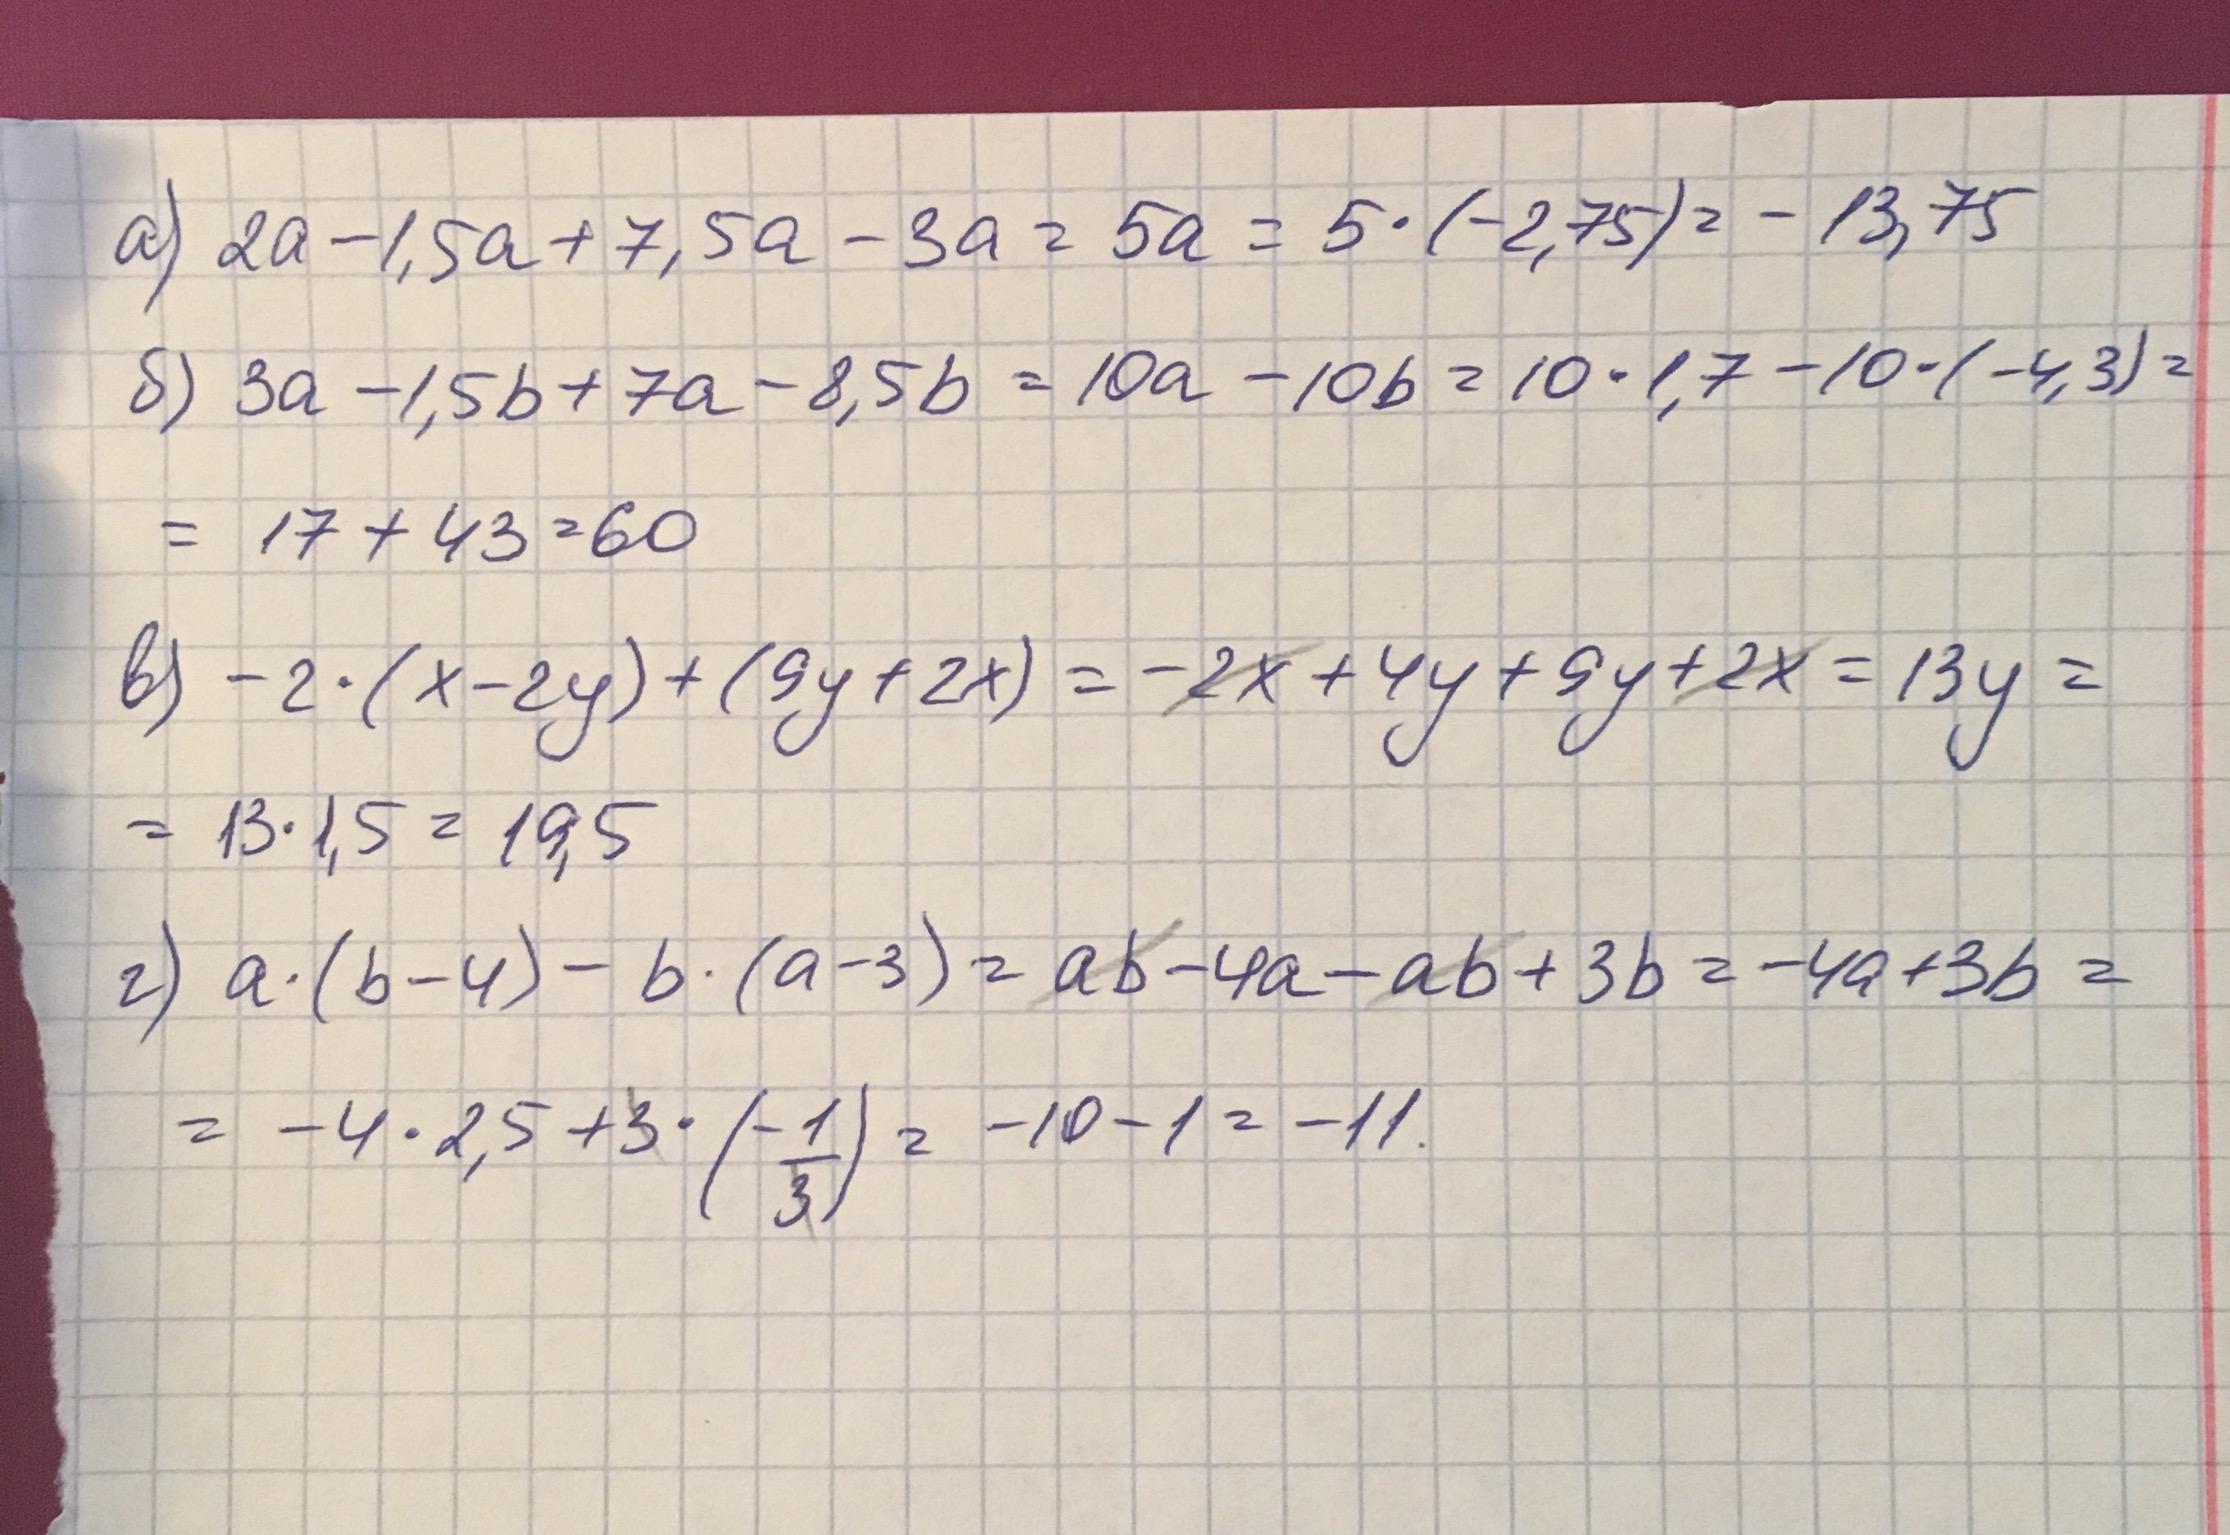 а) 2a - 1,5a + 7,5a - 3a = 5a = 5 · (-2,75) = - 13,75
б) 3a - 1,5b + 7a - 8,5b = 10a - 10b = 10 · 1,7 - 10 · (-4,3) =
= 17 + 43 = 60
в) -2 · (x - 2y) + (9y + 2x) = -2x + 4y + 9y + 2x = 13y =
= 13 · 1,5 = 19,5
г) a · (b - 4) - b · (a - 3) = ab - 4a - ab + 3b = -4a + 3b =
= -4 · 2,5 + 3 · (-1/3) = -10 - 1 = -11.